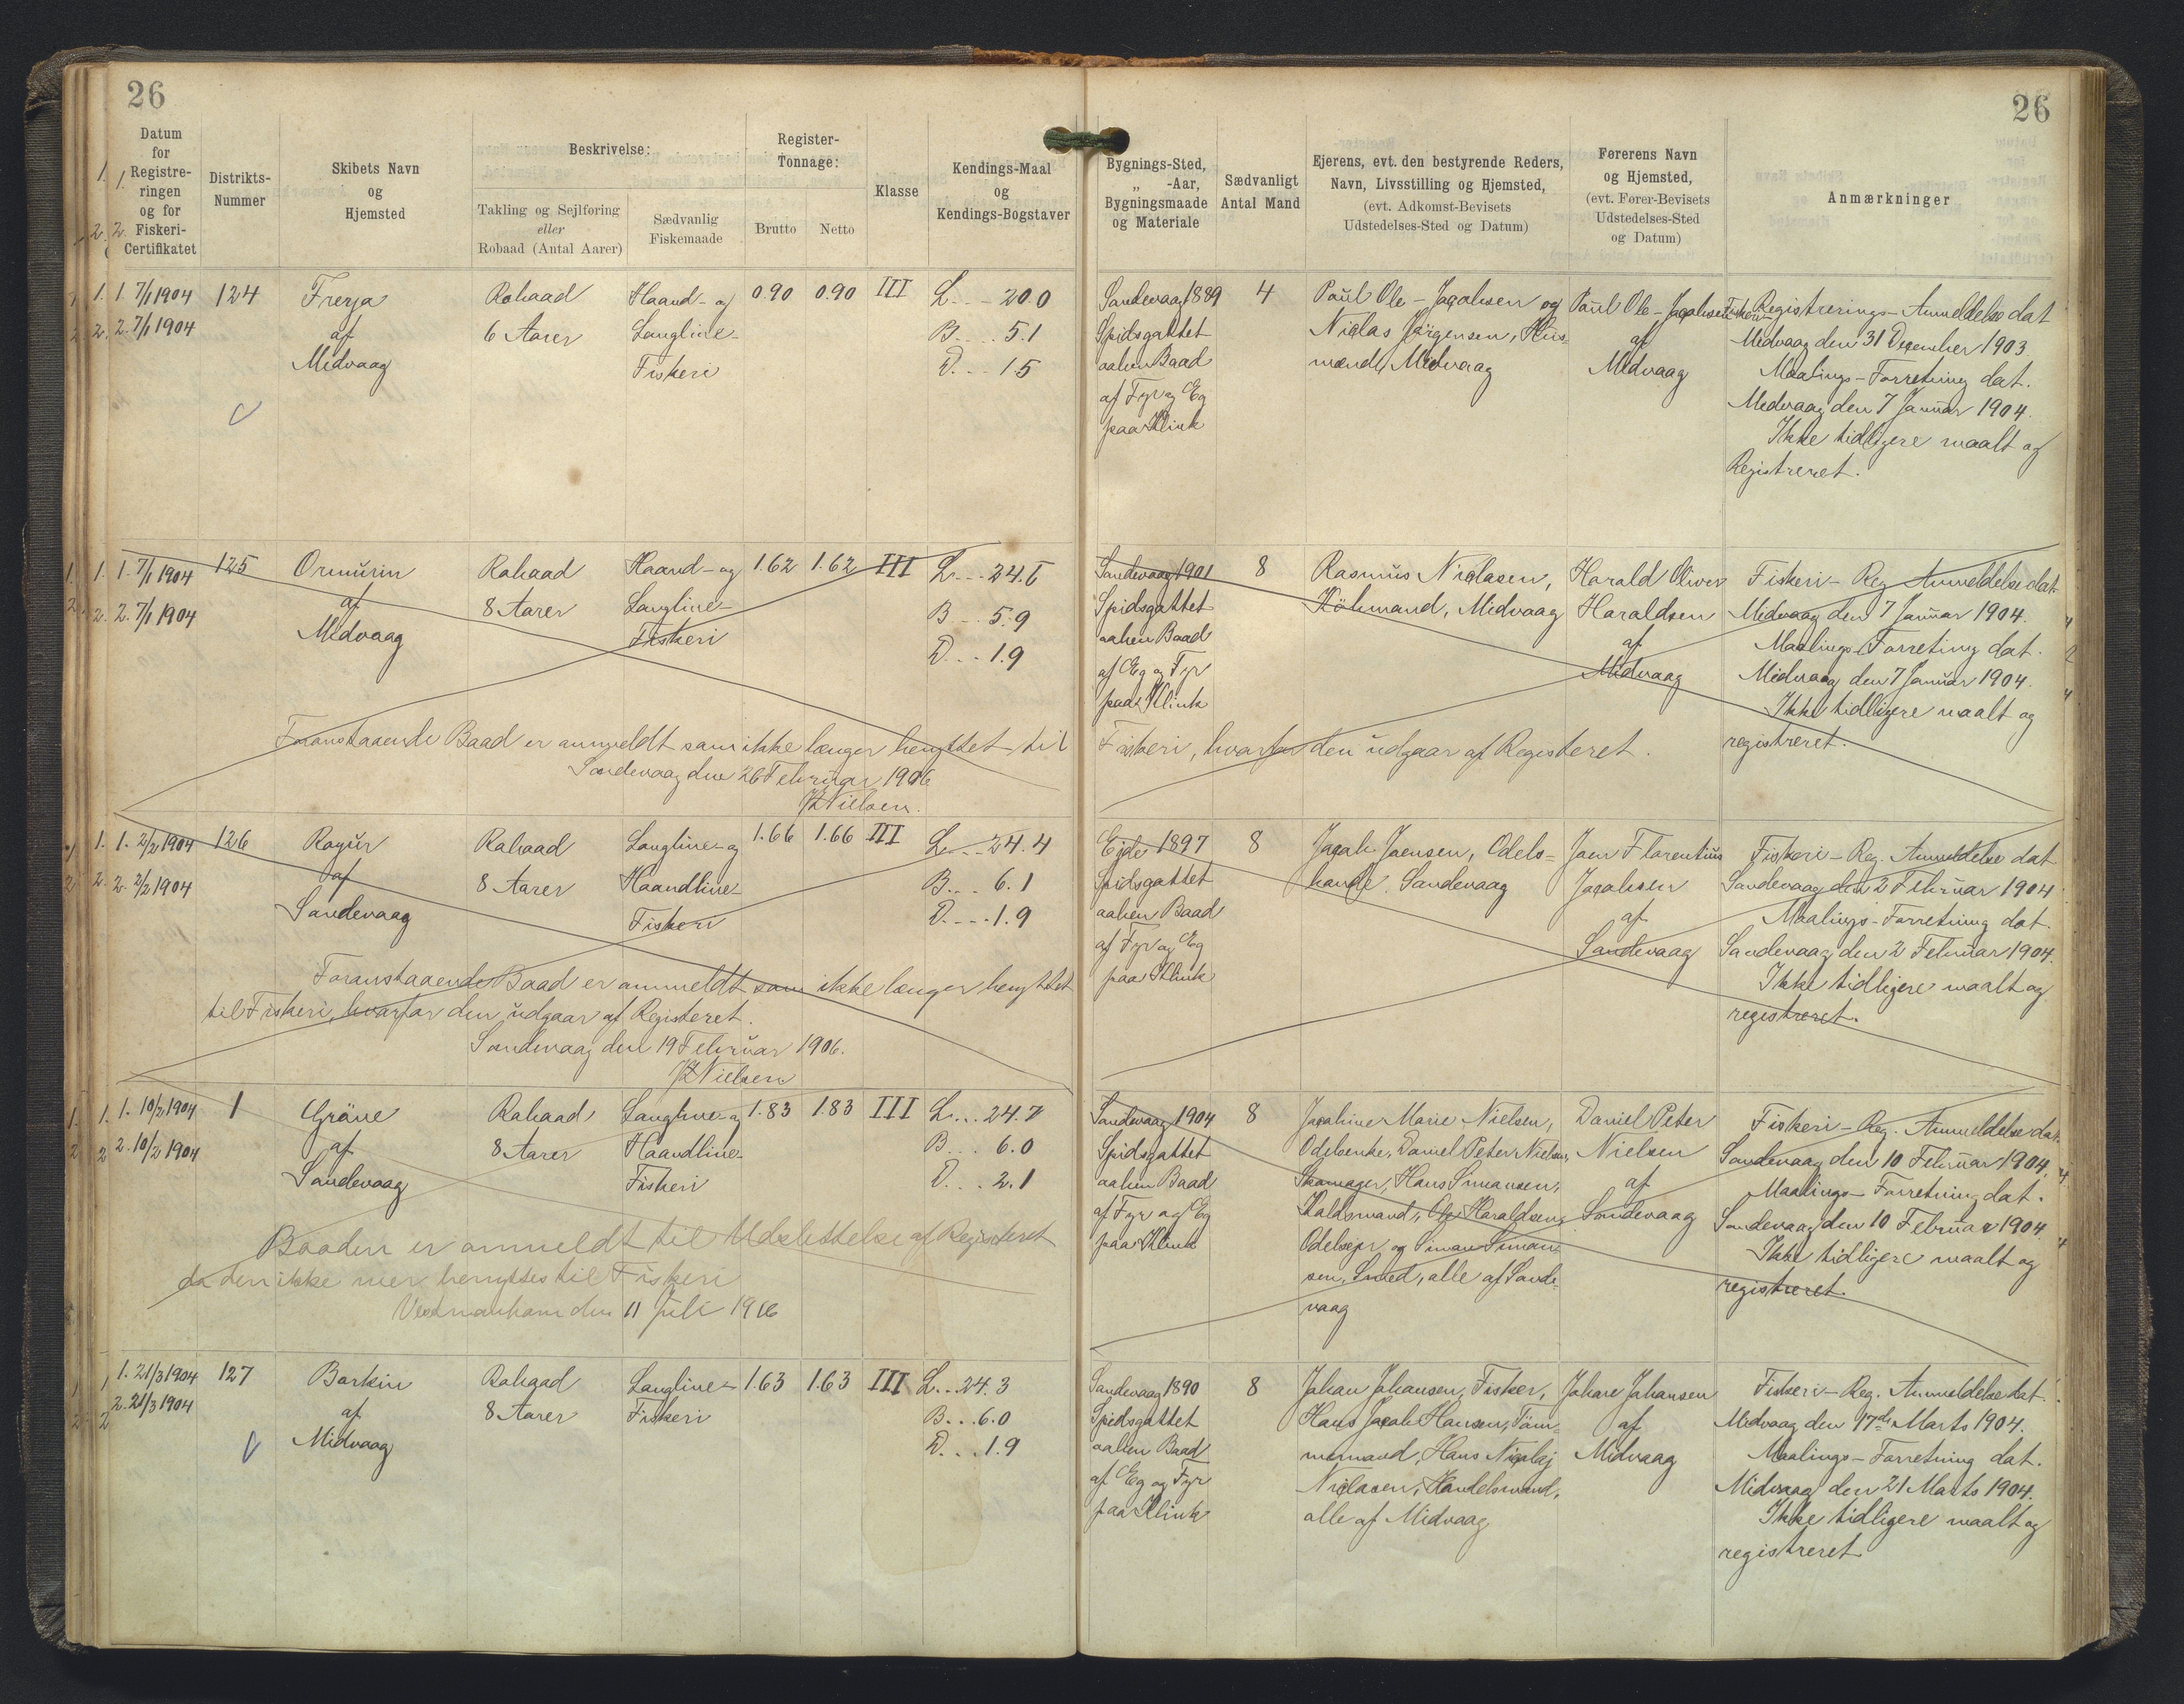 26
26
Datum for Registreringen og for Fiskeri-Certifikatet
Distrikts-Nummer
Skibets Navn og Hjemsted
Beskrivelse:
Takling og Sejlføring eller Robaad (Antal Aarer)
Sædvanlig Fiskemaade
Register-Tonnage:
Brutto
Netto
Klasse
Kendings-Maal og Kendings-Bogstaver
Bygnings-Sted, „ -Aar, Bygningsmaade og Materiale
Sædvanligt Antal Mand
Ejerens, evt. den bestyrende Reders, Navn, Livsstilling og Hjemsted, (evt. Adkomst-Bevisets Udstedelses-Sted og Datum)
Førerens Navn og Hjemsted, (evt. Fører-Bevisets Udstedelses-Sted og Datum)
Anmærkninger
1. 7/1 1904
2. 7/1 1904
124
Freyja
af
Midvaag
Robaad
6 Aarer
Haand- og
Langline-
Fiskeri
0.90
0.90
III
L. - - 20.0
B. . . . 5.1
D. - - - 1.5
Sandevaag 1889
Spidsgattet
aaben Baad
af Fyr og Eg
paa Klink
4
Paul Ole-Jacobsen og
Niclas Jørgensen, Hus-
mænd, Midvaag
Paul Ole-Jacobsen
af
Midvaag
Fiskeri-Registrerings-Anmeldelse dat
Midvaag den 31 December 1903.
Maalings-Forretning dat.
Midvaag den 7 Januar 1904.
Ikke tidligere maalt og
Registreret.
1. 7/1 1904
2. 7/1 1904
125
Ormurin
af
Midvaag
Robaad
8 Aarer
Haand- og
Langline-
Fiskeri
1.62
1.62
III
B. - - 5.9
D. . . 1.9
Sandevaag 1901
Spidsgattet
aaben Baad
af Eg og Fyr
paa Klink
8
Rasmus Niclasen,
Købmand, Midvaag
Harald Oliver
Haraldsen
af
Midvaag
Fiskeri-Reg. Anmeldelse dat.
Midvaag den 7 Januar 1904.
Maalings-Forretning dat.
Midvaag den 7 Januar 1904.
Ikke tidligere maalt og
registreret.
Foranstaaende Baad er anmeldt som ikke længer benyttet til Fiskeri, hvorfor den udgaar af Registeret.
Sandevaag den 26 Februar 1906
Nielsen.
1. 2/2 1904
2. 2/2 1904
126
Rogur
af
Sandevaag
Robaad
8 Aarer
Langline- og
Haandline-
Fiskeri
1.66
1.66
III
L. - - 24.4
B. . . 6.1
D. - - - 1.9
Ejde 1897
Spidsgattet
aaben Baad
af Fyr og Eg
paa Klink
8
Jacob Joensen, Odels-
bonde, Sandevaag
Joen Florentius
Jacobsen
af
Sandevaag
Fiskeri-Reg. Anmeldelse dat
Sandevaag den 2 Februar 1904
Maalings-Forretning dat.
Sandevaag den 2 Februar 1904.
Ikke tidligere maalt og
registreret.
Foranstaaende Baad er anmeldt som ikke længer benyttet
til Fiskeri, hvorfor den udgaar af Registeret.
Sandevaag den 19 Februar 1906.
Nielsen
1. 10/2 1904
2. 10/2 1904
1
Gräne
af
Sandevaag
Robaad
8 Aarer
Langline- og
Haandline-
Fiskeri
1.83
1.83
III
L. . . 24.7
B. . . 6.0
D. . . 2.1
Sandevaag 1904
Spidsgattet
aaben Baad
af Fyr og Eg
paa Klink
8
Jacobine Marie Nielsen,
Odelsenke, Daniel Peter Nielsen,
Skomager, Hans Simonsen,
Ole Haraldsen,
Odelsejer og Simon Simon-
sen, Smed, alle af Sande-
vaag
Daniel Peter
Nielsen
af
Sandevaag
Fiskeri-Reg. Anmeldelse dat.
Sandevaag den 10 Februar 1904.
Maalings-Forretning dat.
Sandevaag den 10 Februar 1904.
Ikke tidligere maalt og
registreret.
Baaden er anmeldt til Udslettelse af Registeret
da den ikke mer benyttes til Fiskeri
Vestmanhavn den 11 Juli 1916
1. 21/3 1904
2. 21/3 1904
127
Barkin
af
Midvaag
Robaad
8 Aarer
Langline-
Fiskeri
1.63
1.63
III
L. . . 24.3
B. . . 6.0
D. . . 1.9
Sandevaag 1890
Spidsgattet
aaben Baad
af Eg og Fyr
paa Klink
8
Johan Johansen, Fisker,
Hans Jacob Hansen, Töm-
mermand, Hans Nicolaj
Niclasen, Handelsmand,
alle af Midvaag
Johan Johansen
af
Midvaag
Fiskeri-Reg. Anmeldelse dat.
Midvaag den 17de Marts 1904.
Maalings-Forretning dat.
Midvaag den 21 Marts 1904.
Ikke tidligere maalt og
registreret